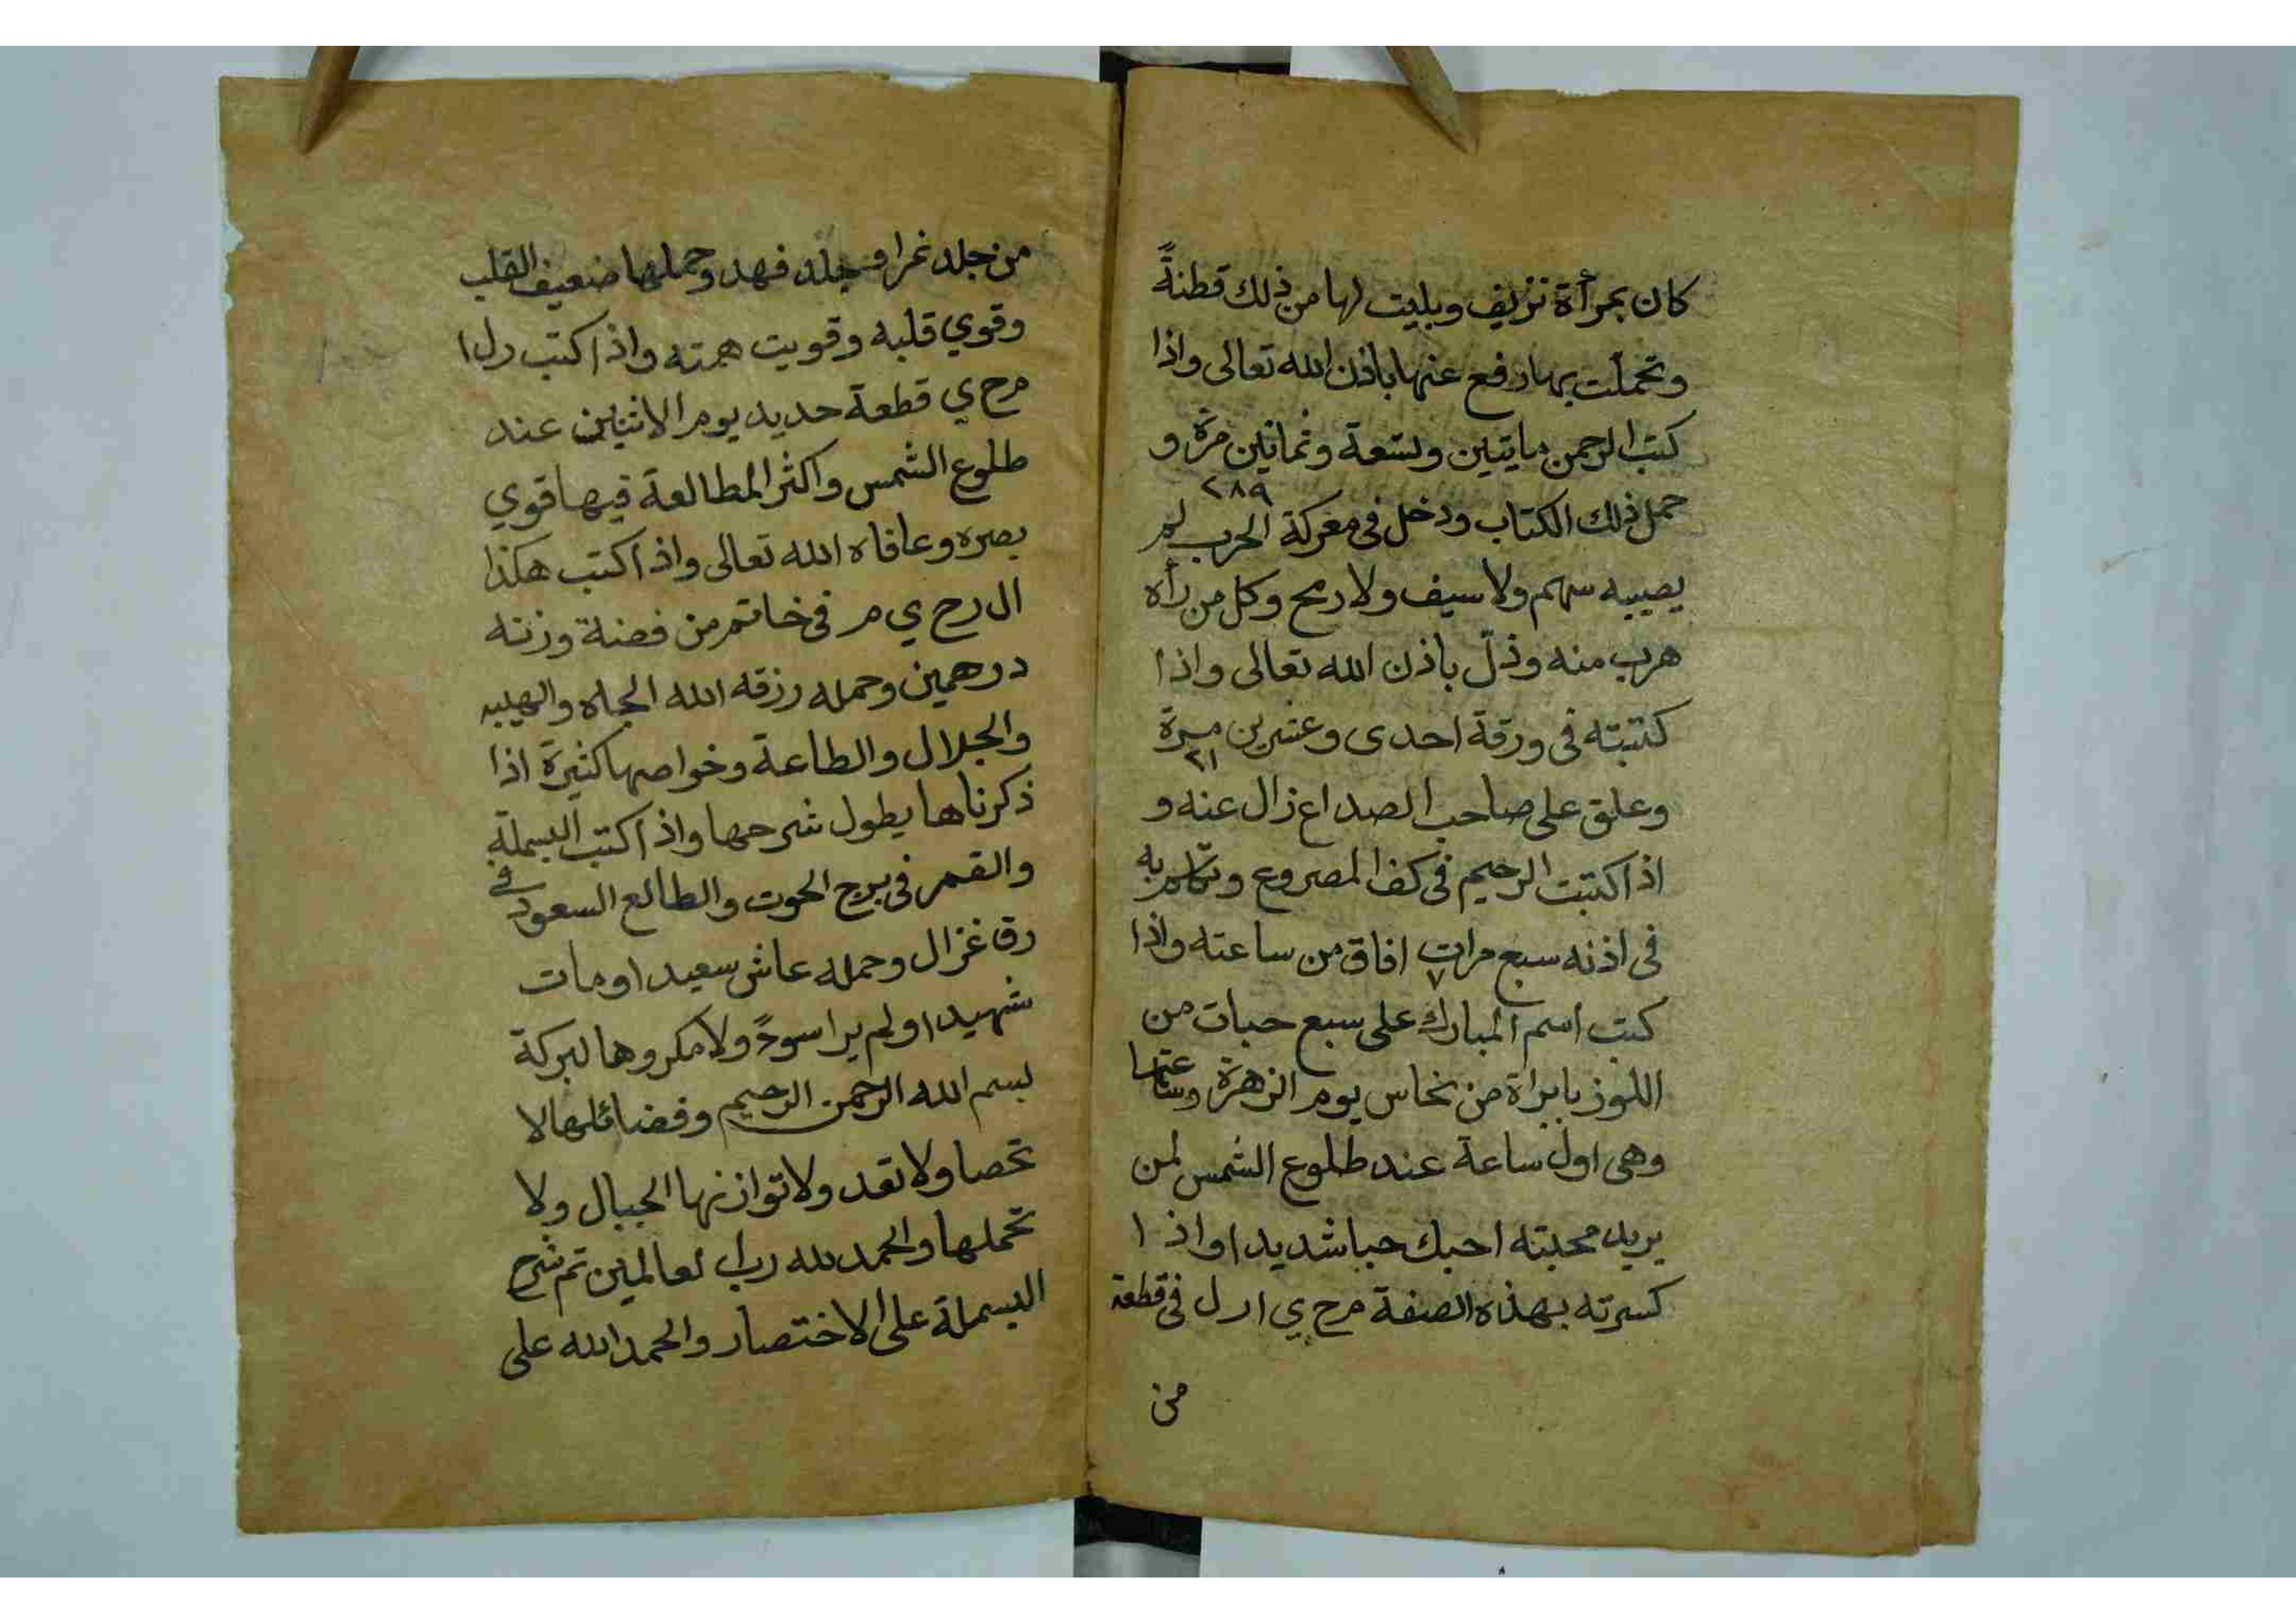 كان بمرأة نزيف وبليت لها من ذلك قطنةً
وتحملت بها رفع عنها باذن الله تعالى واذا
كتب الرحمن مايتين وتسعة وثمانين مرة و
٢٨٩
حمل ذلك الكتاب ودخل فى معركة الحرب لم
يصيبه سهم ولا سيف ولا رمح وكل من رأه
هرب منه وذلّ باذن الله تعالى واذا
كتبته فى ورقة احدى وعشرين مرة
٢١
وعلق على صاحب الصداع زال عنه و
اذا كتبت الرحيم فى كف المصروع وتكلم به
فى اذنه سبع مرات افاق من ساعته واذا
٧
كتب اسم المبارك على سبع حبات من
اللوز بابراة من نحاس يوم الزهرة وساعتها
وهى اول ساعة عند طلوع الشمس لمن
يريد محبته احبك حبا شديدا واذا
كسرته بهذه الصفة م ح ي ا ر ل فى قطعة
من
من جلد نمر او جلد فهد وحملها ضعيف القلب
وقوي قلبه وقويت همته واذا كتب ر ل ا
م ح ي قطعة حديد يوم الاثنين عند
طلوع الشمس واكثر المطالعة فيها قوي
بصره وعافاه الله تعالى واذا كتب هكذا
ال ر ح ي م فى خاتم من فضة وزنه
درهمين وحمله رزقه الله الجاه والهيبه
والجلال والطاعة وخواصها كثيرة اذا
ذكرناها يطول شرحها واذا كتب البسملة
والقمر فى برج الحوت والطالع السعود في
رق غزال وحمله عاش سعيدا ومات
شهيدا ولم يرا سوءً ولا مكروها لبركة
بسم الله الرحمن الرحيم وفضائلها لا
تحصا ولا تعد ولا توازنها الجبال ولا
تحملها والحمد لله رب العالمين تم شرح
البسملة على الاختصار والحمد الله على